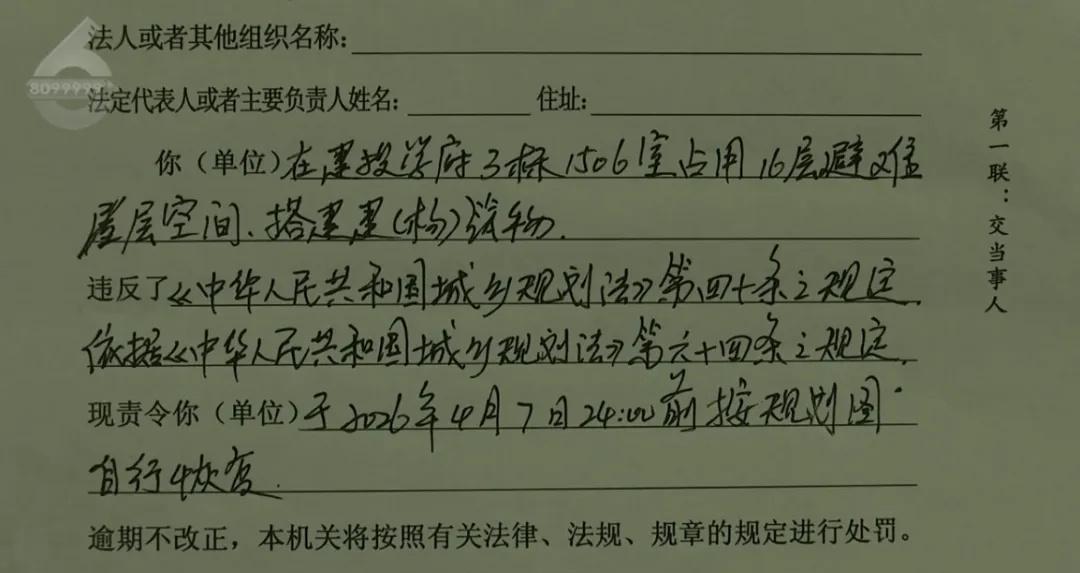 8099999
法人或者其他组织名称：
法定代表人或者主要负责人姓名： 住址：
你（单位）在建投学府3栋1506室占用16层避难
层空间、搭建建(构)筑物.
违反了《中华人民共和国城乡规划法》第四十条之规定.
依据《中华人民共和国城乡规划法》第六十四条之规定.
现责令你（单位）于2026年4月7日24:00前按规划图
自行恢复.
逾期不改正，本机关将按照有关法律、法规、规章的规定进行处罚。
第一联：交当事人